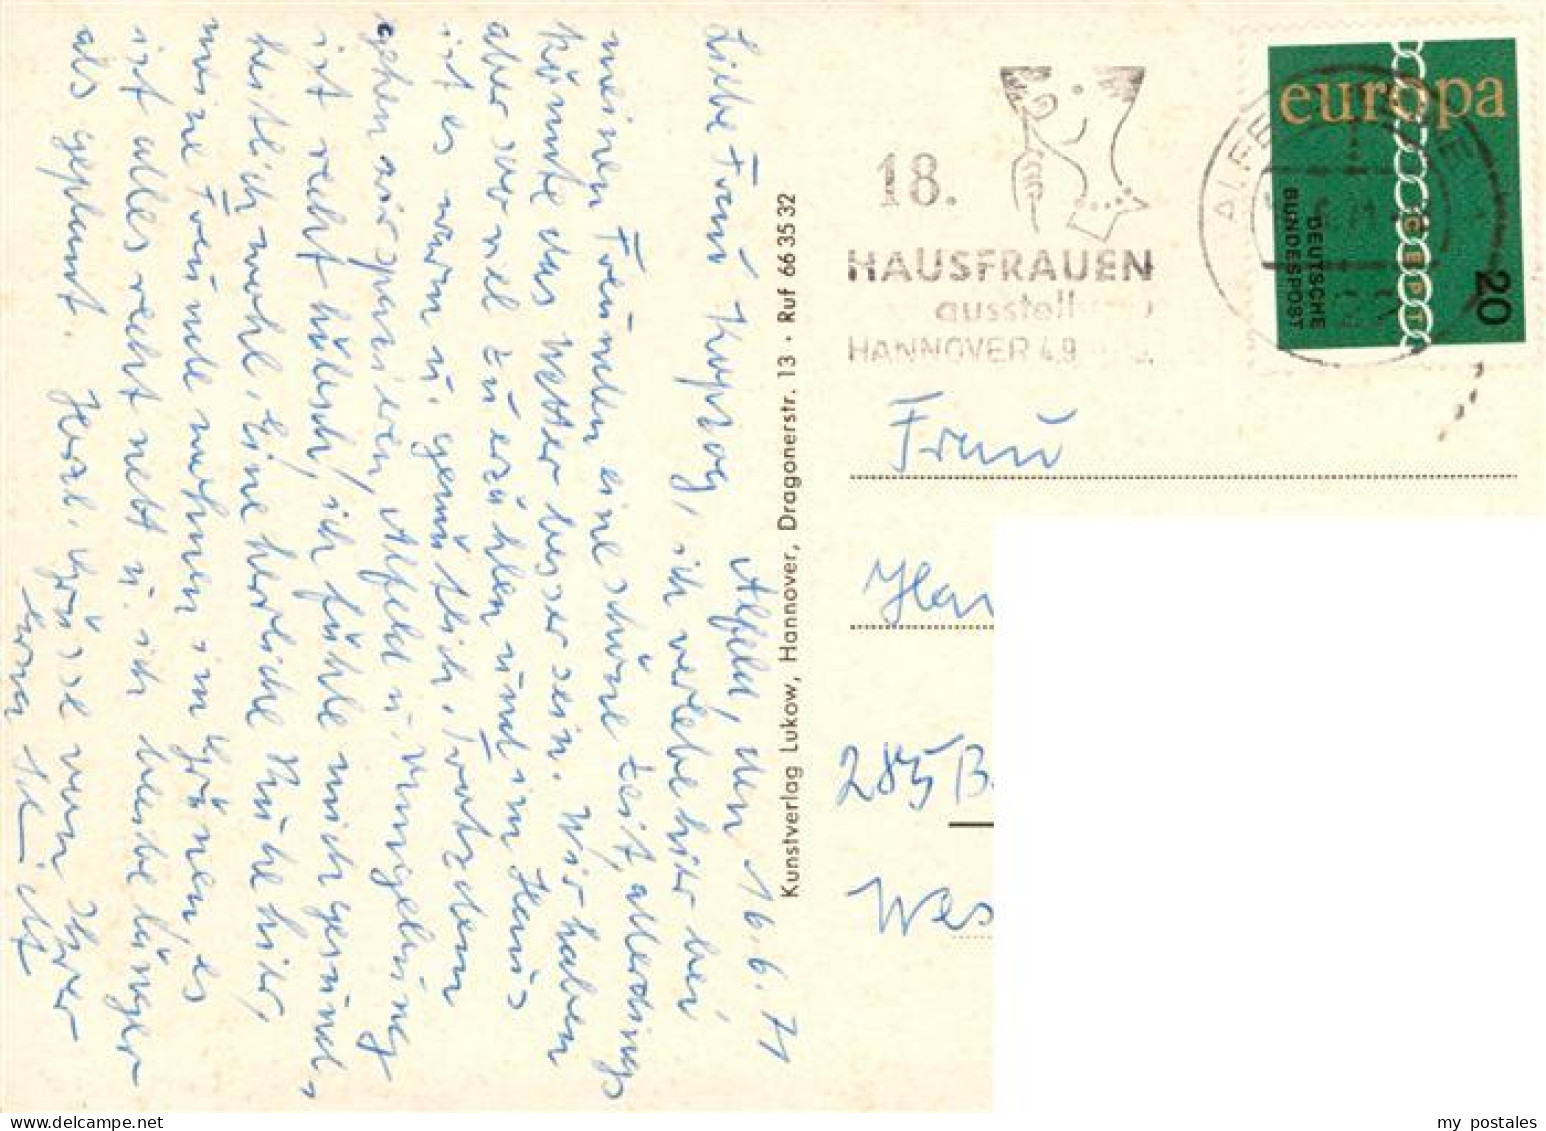 Alfeld, den 16.6.71
Liebe Frau Kopsog, ich verlebe hier bei
meinen Freunden eine schöne Zeit, allerdings
könnte das Wetter besser sein. Wir haben
aber soviel zu erzählen und im Haus
ist es warm u. gemütlich. Trotzdem
gehen wir spazieren, Alfeld u. Umgebung
ist recht hübsch, ich fühle mich gesund-
heitlich wohl. Eine herrliche Ruhe hier,
meine Freunde wohnen im Grünen, es
ist alles recht nett u. ich bleibe länger
als geplant. Herzl. Grüsse von Ihrer
Kunstverlag Lukow, Hannover, Dragonerstr. 13 · Ruf 66 35 32
18.
HAUSFRAUEN
ausstellung
HANNOVER 4.9
europa
CEPT
DEUTSCHE
BUNDESPOST
20
Frau
285 B
Wes
my postales